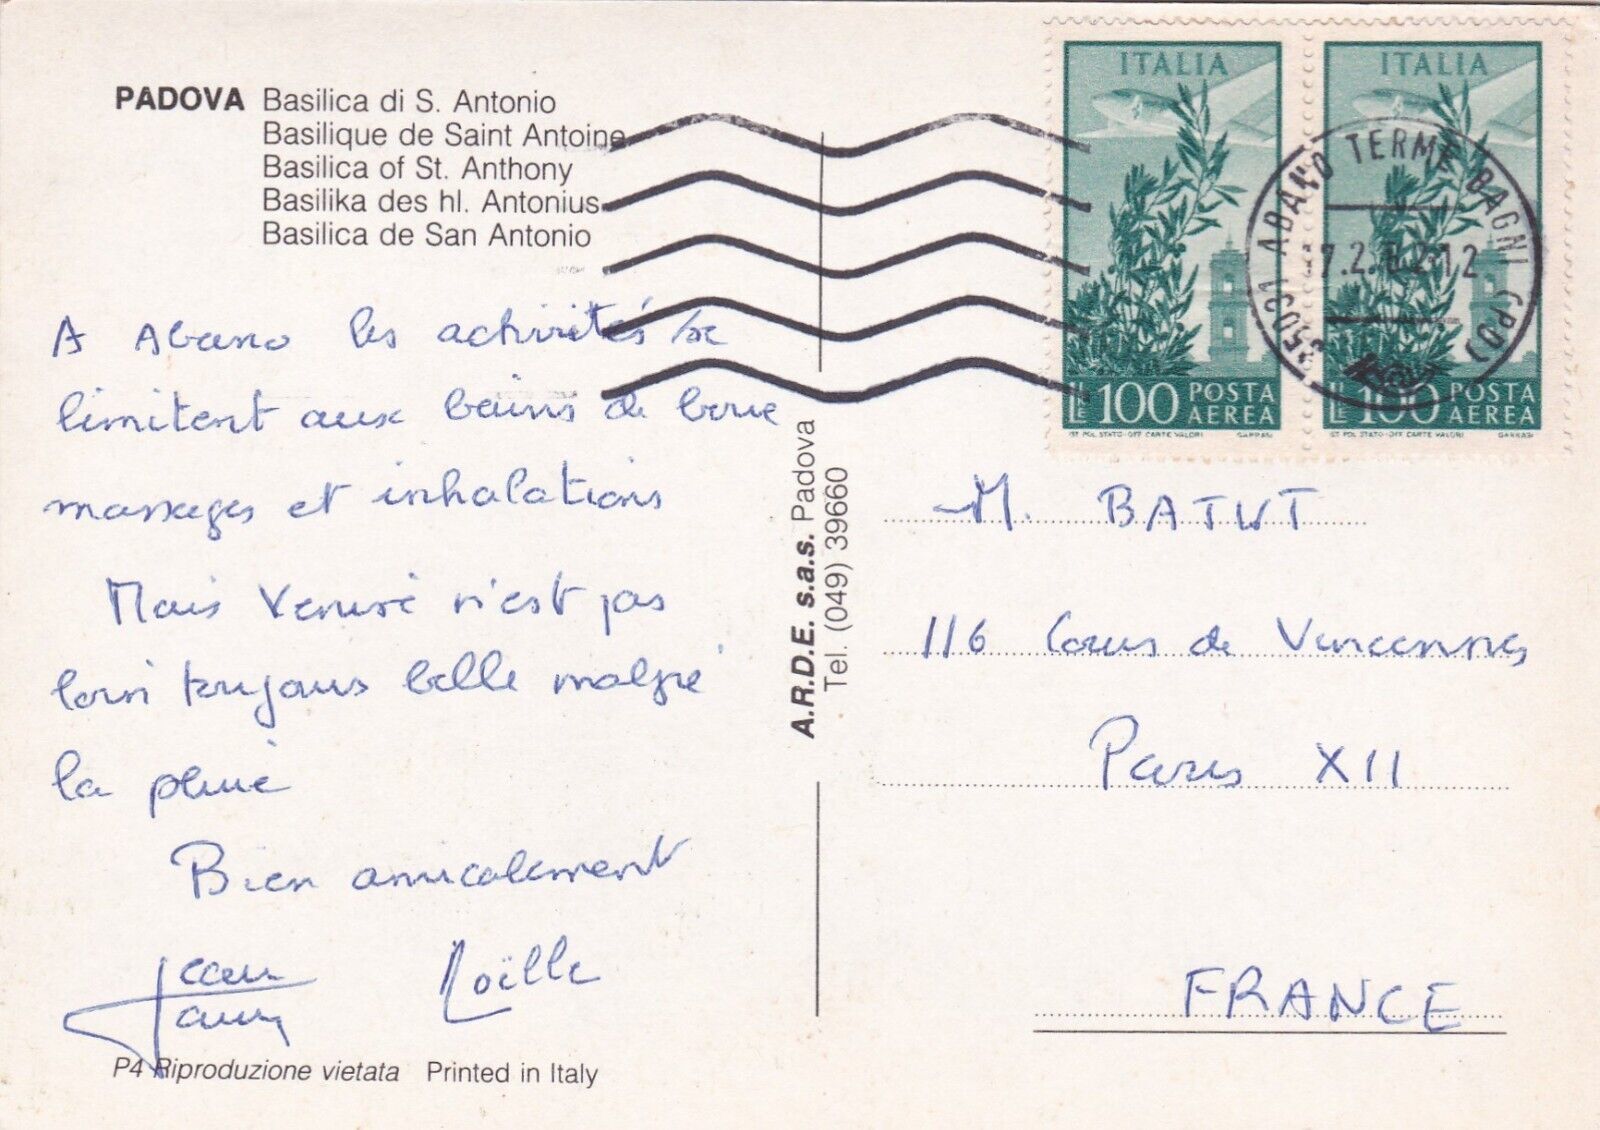 PADOVA Basilica di S. Antonio
Basilique de Saint Antoine
Basilica of St. Anthony
Basilika des hl. Antonius
Basilica de San Antonio
A Abano les activités se
limitent aux bains de boue
massages et inhalations
Mais Venise n'est pas
loin toujours belle malgré
la pluie
Bien amicalement
Jean Noëlle
P4 Riproduzione vietata Printed in Italy
A.R.D.E. s.a.s. Padova
Tel. (049) 39660
ITALIA
L.LE 100 POSTA AEREA
IST. POL. STATO-OFF. CARTE VALORI GARRASI
ITALIA
L.LE 100 POSTA AEREA
IST. POL. STATO-OFF. CARTE VALORI GARRASI
35031 ABANO TERME BAGNI (PD)
M. BATUT
116 Cours de Vincennes
Paris XII
FRANCE